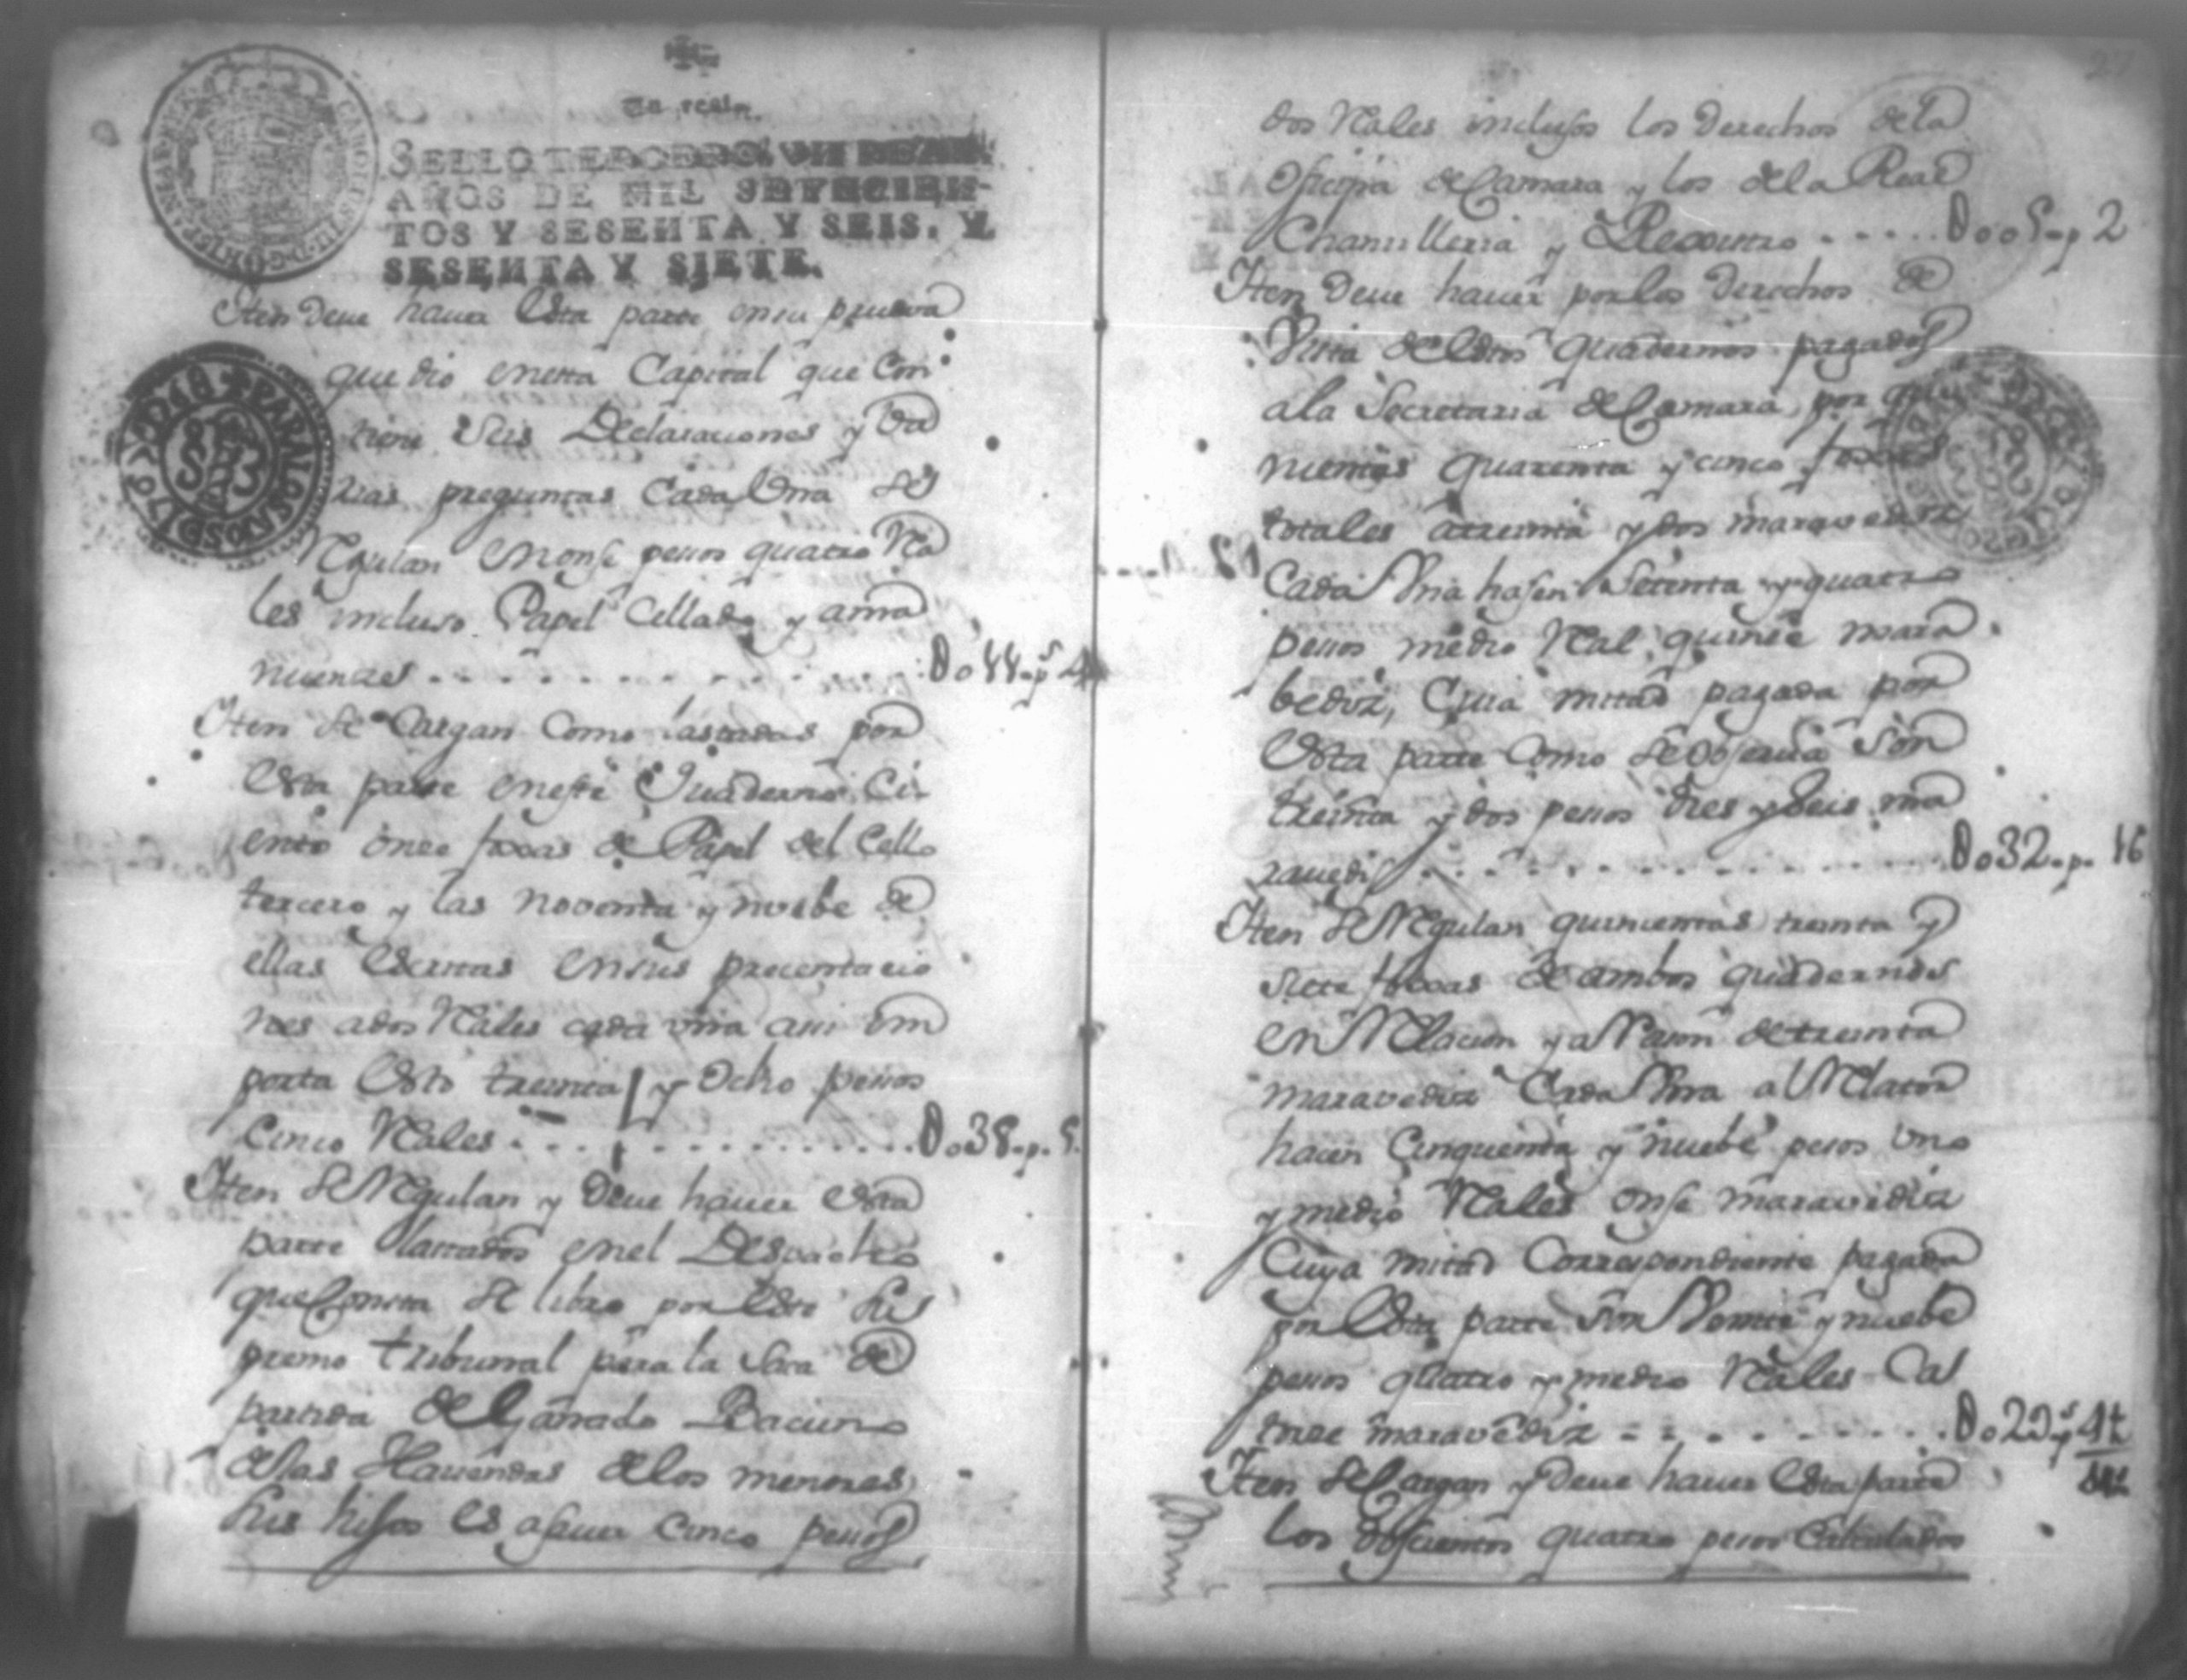 Un real.
SELLO TERCERO, UN REAL,
AÑOS DE MIL SETECIEN-
TOS Y SESENTA Y SEIS, Y
SESENTA Y SIETE.
Iten Deve haver Esta parte en su prueva
que dio en esta Capital que Con
tiene Seis Declaraciones y Va
rias preguntas Cada Una se
Regulan en onse pesos quatro Rea
les incluso Papel Cellado y ama
nuenses - - - - - - - Do11-ps 4
Iten se Cargan Como lastadas por
Esta parte en este Quaderno Ci-
ento onze foxas de Papel del Cello
tercero y las noventa y nuebe de
ellas escritas en sus precentacio
nes a dos Reales cada una asi im
porta Esto treinta y Ocho pesos
Cinco Reales - - - - - - - Do38-p. 5.
Iten se Regulan y Deve haver Esta
parte lastados en el Despacho
que Consta se libro por Este Su
premo tribunal para la Saca de
partida de Ganado Bacuno
de las Haciendas de los menores
sus hijos es a saver cinco pesos
dos Reales inclusos los Derechos de la
Oficina de Camara y los de la Real
Chancilleria y Rexistro - - - - - Do05-p 2
Iten Deve haver por los Derechos de
Vista de Estos quadernos pagados
a la Secretaria de Camara, por qui
nientas quarenta y cinco foxas
totales a treinta y dos maravediz
Cada Una hasen Setenta y quatro
pesos medio Real quinse mara
bediz, Cuia mitad pagada por
Esta parte Como se obserua son
treinta y dos pesos dies y seis ma
ravedis - - - - - - - Do32-p. 16
Iten se Regulan quinientas treinta y
siete foxas de ambos quadernos
en Relacion y a Rason de treinta
maravediz Cada Una al Relator
hacen Cinquenta y nuebe pesos uno
y medio Reales onse maravediz
Cuya mitad Correspondiente pagada
por Esta parte son Veinte y nuebe
pesos quatro y medio Reales Ca
torze maravediz - - - - - - - Do29ps 4½
Iten se Cargan y Deve haver Esta parte
los doscientos quatro pesos Calculados